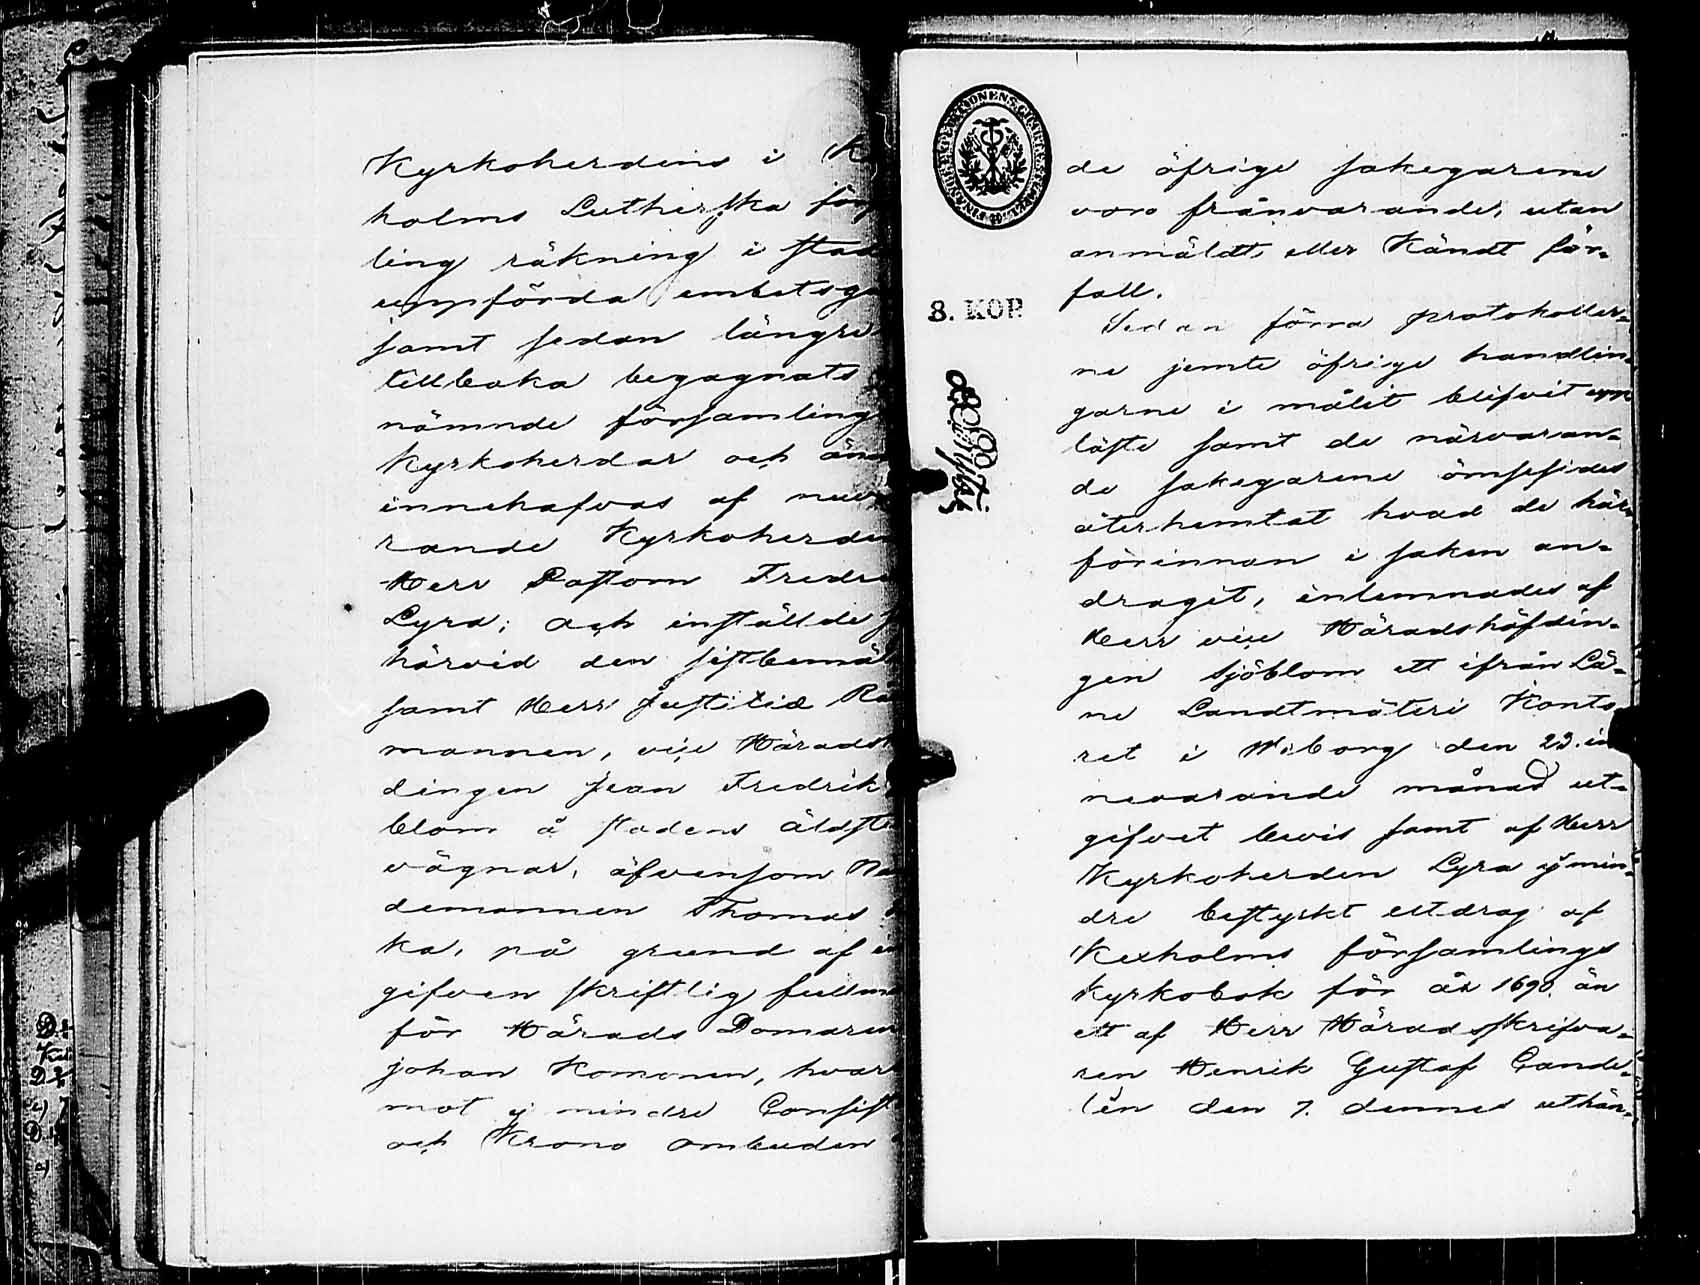 Kyrkoherdens i K
holms Lutherska för
ling räkning i stad
uppförda embetsg
samt sedan längre
tillbaka begagnats
nämnde församling
Kyrkoherdar och än
innehafvas af nuv
rande Kyrkoherde
Herr Pastorn Fredr
Lyra; och inställde
härvid den sistbemäl
samt Herr Justitiæ Rå
mannen, vice Härads
dingen Jean Fredrik
blom å stadens äldste
vägnar, äfvensom Nä
demannen Thomas
ka, på grund af
gifven skriftlig fullm
för Härads Domaren
Johan Komonen, hvar
mot ej mindre Consist
och Krono ombuden
8. KOP.
de öfrige sakegarene
voro frånvarande, utan
anmäldt eller Kändt för-
fall.
Sedan förra protokoller-
ne jemte öfrige handlin-
garne i målet blifvit upp
läste samt de närvaran-
de sakegarene ömsesides
återhemtat hvad de här
förinnan i saken an-
draget, inlemnades af
Herr vice Häradshöfdin-
gen Sjöblom ett ifrån Lä-
ne Landtmäteri Konto
ret i Wiborg den 23. in
nevarande månad ut-
gifvet bevis samt af Herr
Kyrkoherden Lyra ej min-
dre bestyrkt utdrag af
Kexholms församlings
Kyrkobok för år 1690. än
ett af Herr Häradsskrifva-
ren Henrik Gustaf Cande-
lên den 7. dennes utkär-